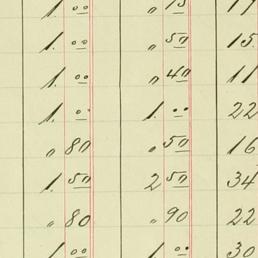 1. 00 " 15 17
1. 00 " 50 15.
1. 00 " 40 11
1. 00 1. 00 22
" 80 " 50 16
1. 50 2 50 34
" 80 " 90 22
1. 00 1. 00 30